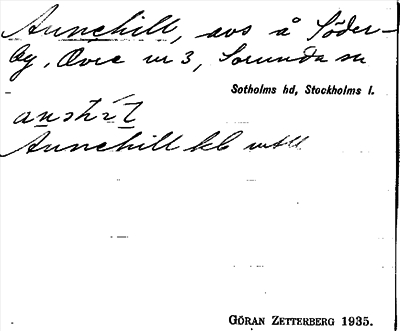 Annehill, avs å Söder-
by, Övre nr 3, Sorunda sn
Sotholms hd, Stockholms l.
Annehill kb
GÖRAN ZETTERBERG 1935.